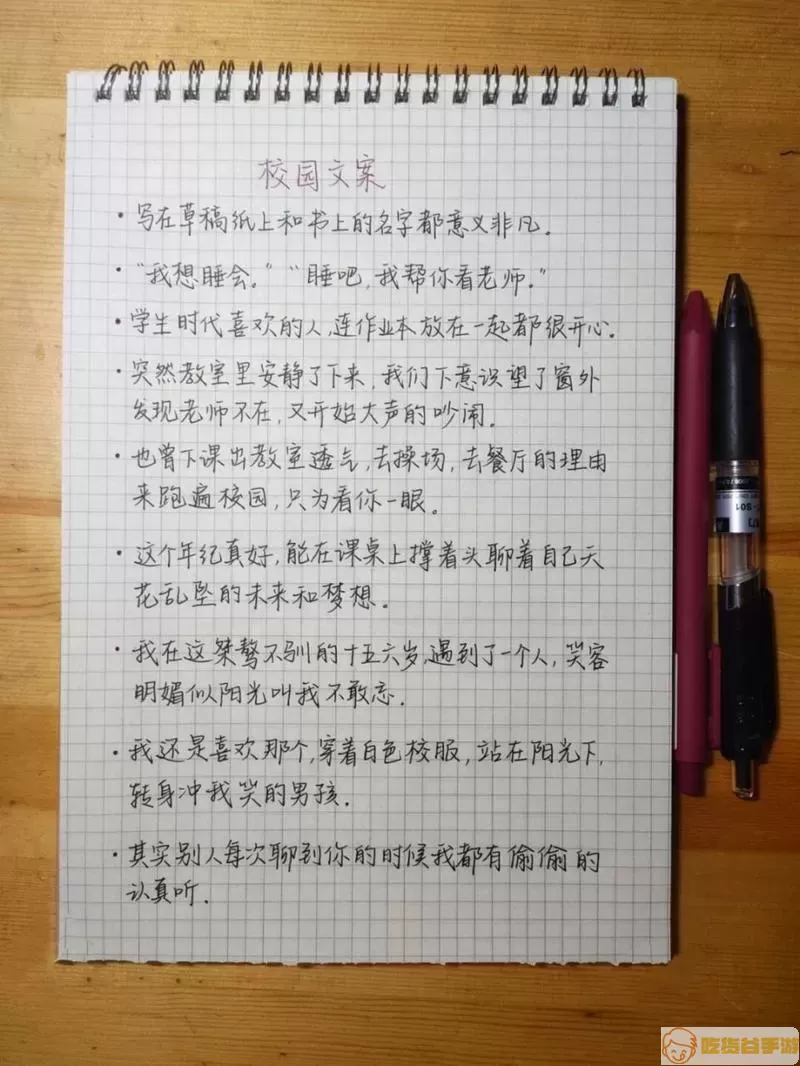 校园文案
·写在草稿纸上和书上的名字都意义非凡.
·“我想睡会.”“睡吧,我帮你看老师.”
·学生时代喜欢的人,连作业本放在一起都很开心.
·突然教室里安静了下来,我们下意识望了窗外
发现老师不在,又开始大声的吵闹.
·也曾下课出教室透气,去操场,去餐厅的理由
来跑遍校园,只为看你一眼.
·这个年纪真好,能在课桌上撑着头聊着自己天
花乱坠的未来和梦想.
·我在这桀骜不驯的十五六岁,遇到了一个人,笑容
明媚似阳光叫我不敢忘.
·我还是喜欢那个,穿着白色校服,站在阳光下,
转身冲我笑的男孩.
·其实别人每次聊到你的时候我都有偷偷的
认真听.
S01
吃货谷手游